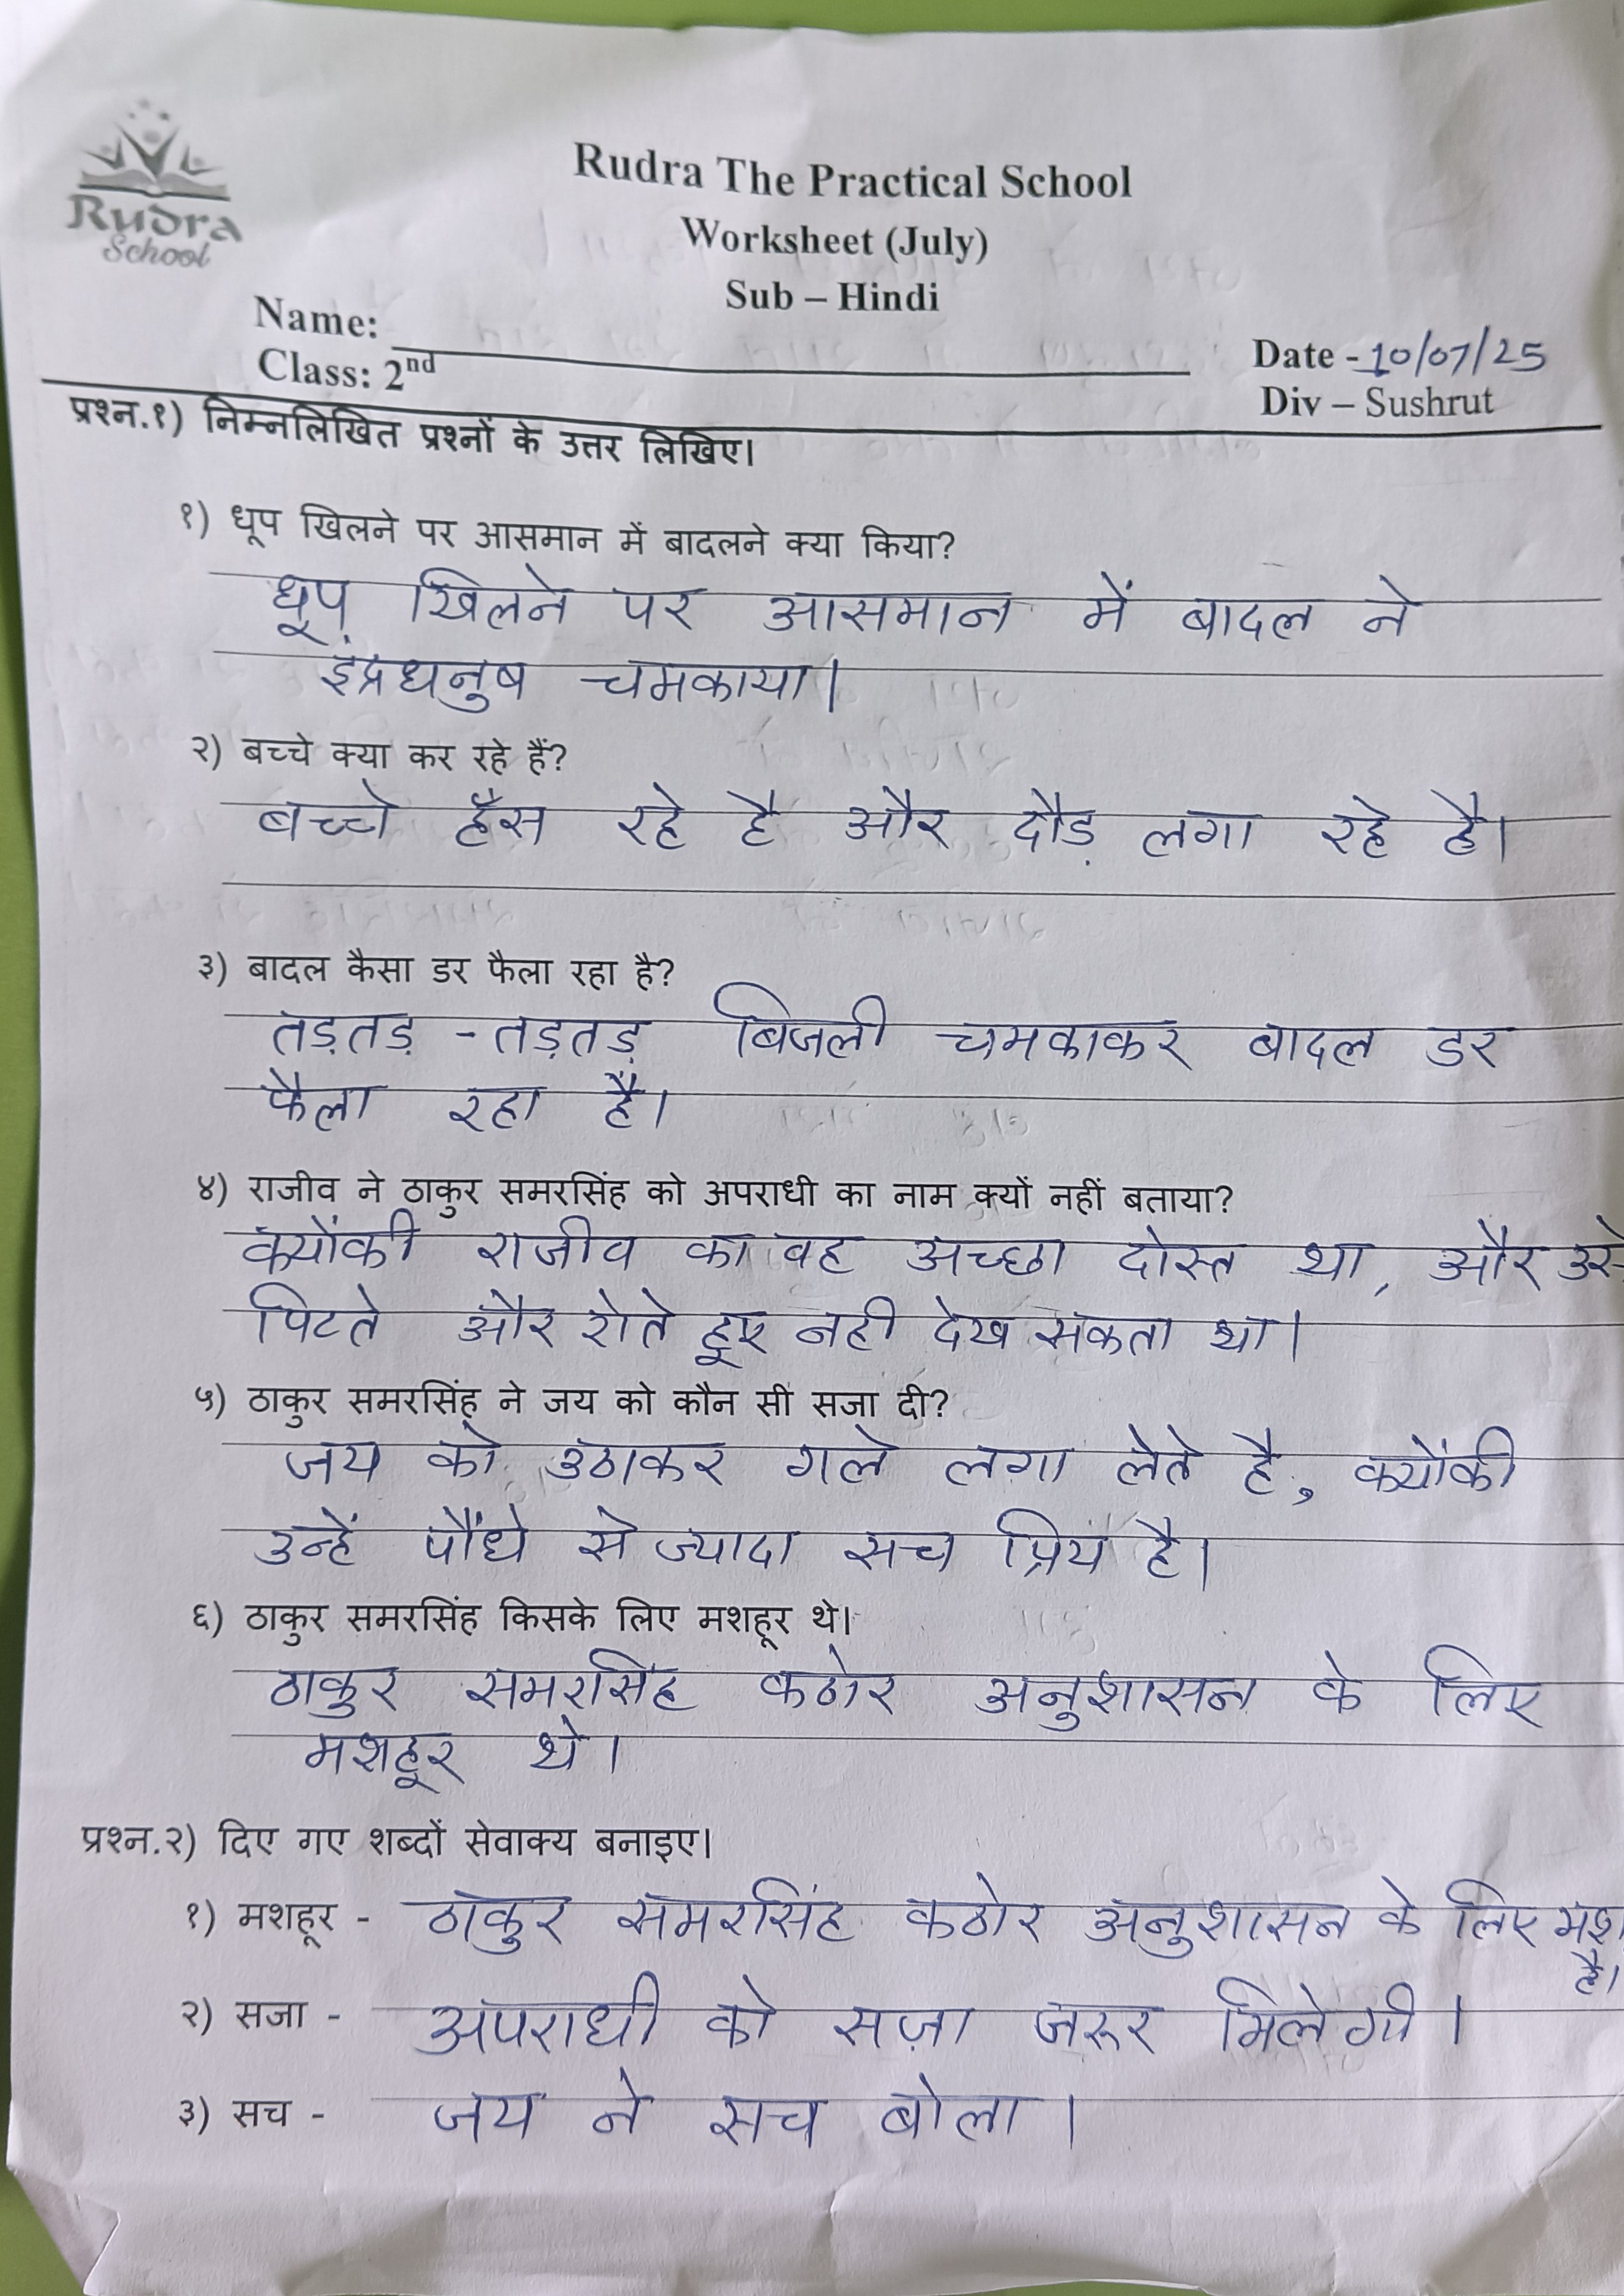 Rudra
School
Rudra The Practical School
Worksheet (July)
Sub – Hindi
Name:
Class: 2nd
Date - 10/07/25
Div – Sushrut
प्रश्न.१) निम्नलिखित प्रश्नों के उत्तर लिखिए।
१) धूप खिलने पर आसमान में बादलने क्या किया?
धूप खिलने पर आसमान में बादल ने
इंद्रधनुष चमकाया।
२) बच्चे क्या कर रहे हैं?
बच्चे हँस रहे है और दौड़ लगा रहे है।
३) बादल कैसा डर फैला रहा है?
तड़तड़ - तड़तड़ बिजली चमकाकर बादल डर
फैला रहा है।
४) राजीव ने ठाकुर समरसिंह को अपराधी का नाम क्यों नहीं बताया?
क्योंकी राजीव का वह अच्छा दोस्त था, और उसे
पिटते और रोते हूए नही देख सकता था।
५) ठाकुर समरसिंह ने जय को कौन सी सजा दी?
जय को उठाकर गले लगा लेते है, क्योंकी
उन्हें पौंधे से ज्यादा सच प्रिय है।
६) ठाकुर समरसिंह किसके लिए मशहूर थे।
ठाकुर समरसिंह कठोर अनुशासन के लिए
मशहूर थे।
प्रश्न.२) दिए गए शब्दों सेवाक्य बनाइए।
१) मशहूर - ठाकुर समरसिंह कठोर अनुशासन के लिए मश
है।
२) सजा - अपराधी को सज़ा जरूर मिलेगी।
३) सच - जय ने सच बोला।